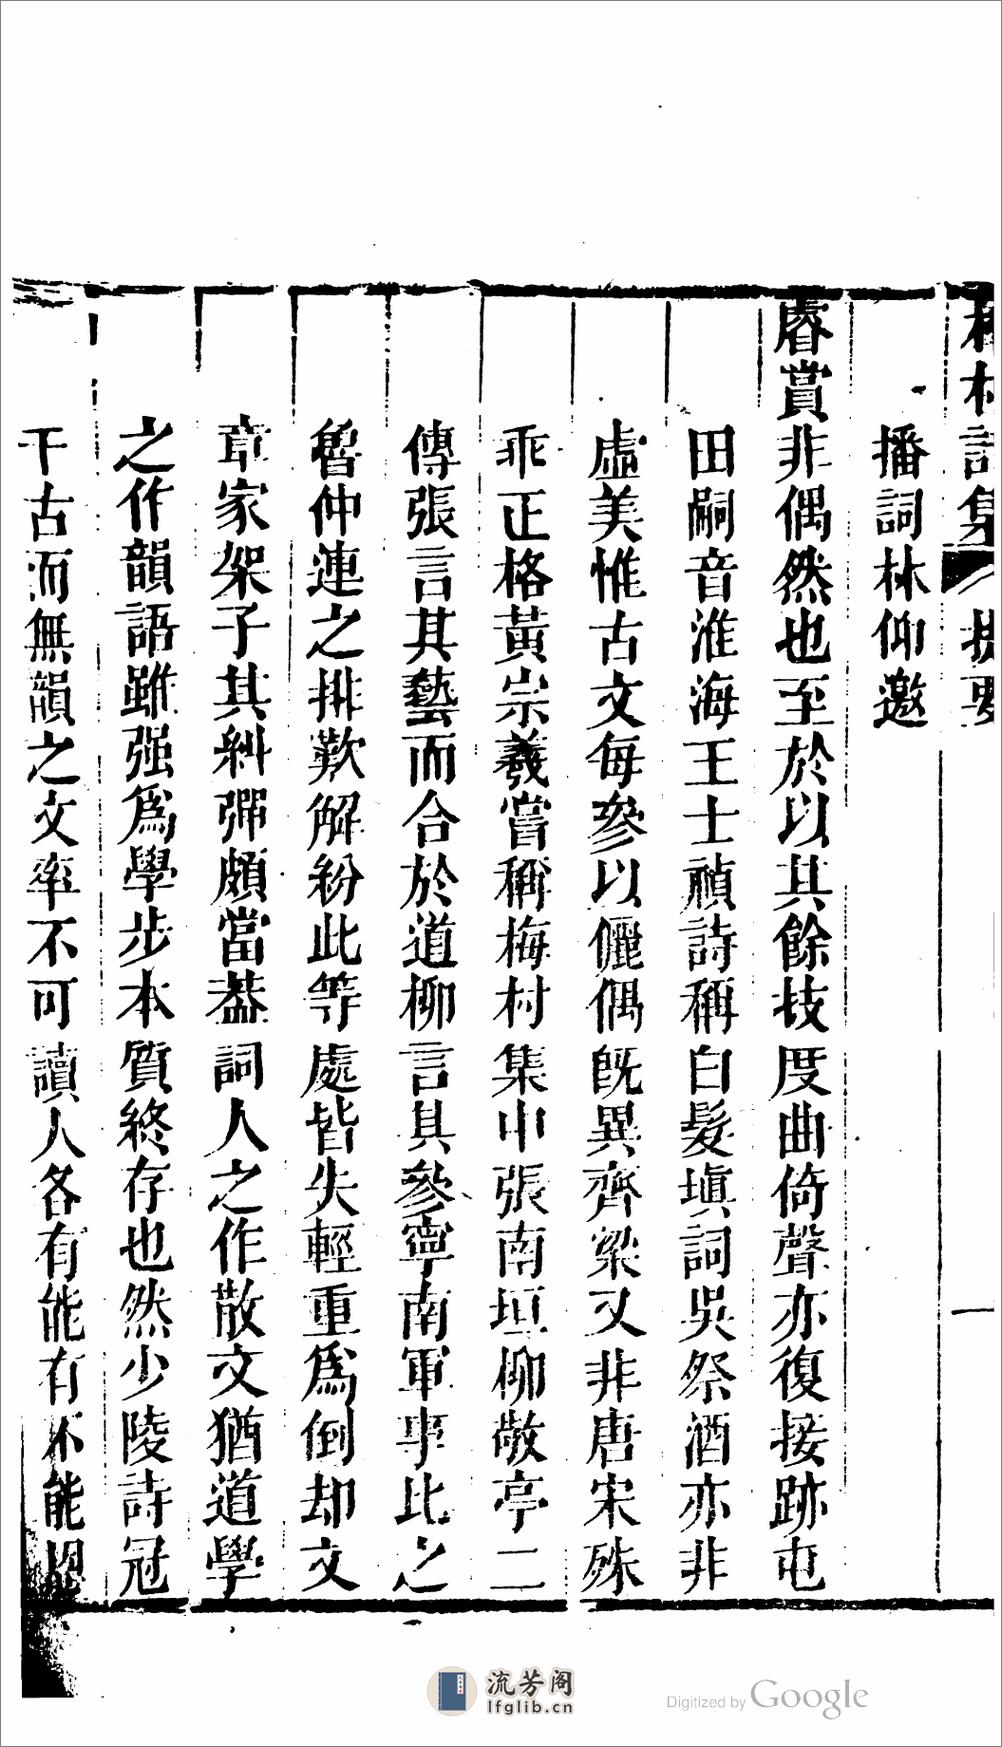 梅村詩集 提要 一
播詞林仰邀
睿賞非偶然也至於以其餘技度曲倚聲亦復接跡屯
田嗣音淮海王士禎詩稱白髮塡詞吳祭酒亦非
虛美惟古文每參以儷偶旣異齊梁又非唐宋殊
乖正格黃宗羲嘗稱梅村集中張南垣柳敬亭二
傳張言其藝而合於道柳言其參寧南軍事比之
魯仲連之排歎解紛此等處皆失輕重爲倒却文
章家架子其糾彈頗當葢詞人之作散文猶道學
之作韻語雖强爲學步本質終存也然少陵詩冠
千古而無韻之文率不可讀人各有能有不能
流芳阁
lfglib.cn
Digitized by Google